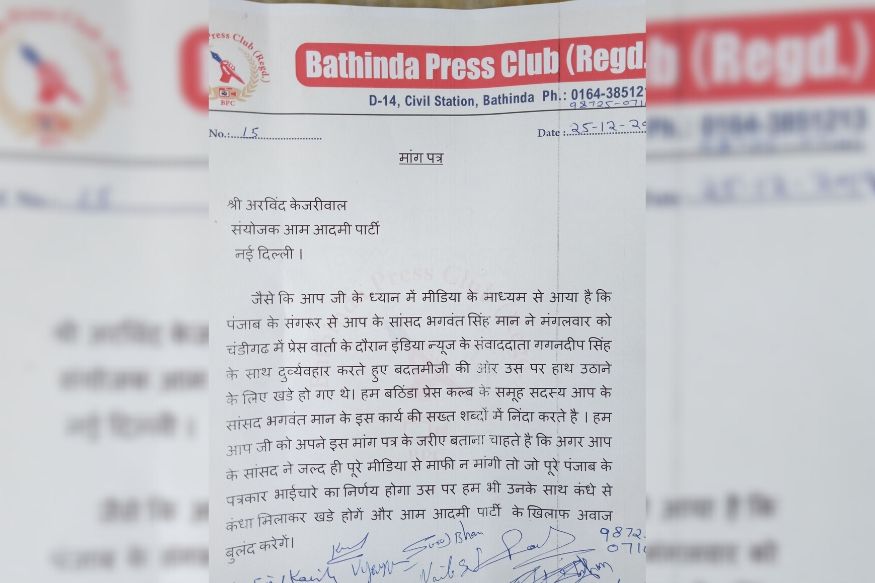 Press Club (Regd.)
BPC
Bathinda Press Club (Regd.
D-14, Civil Station, Bathinda Ph.: 0164-38512
98725-071
No.: 15
Date: 25-12-20
मांग पत्र
श्री अरविंद केजरीवाल
संयोजक आम आदमी पार्टी
नई दिल्ली ।
जैसे कि आप जी के ध्यान में मीडिया के माध्यम से आया है कि
पंजाब के संगरूर से आप के सांसद भगवंत सिंह मान ने मंगलवार को
चंडीगढ में प्रेस वार्ता के दौरान इंडिया न्यूज के संवाददाता गगनदीप सिंह
के साथ दुर्व्यवहार करते हुए बदतमीजी की ओर उस पर हाथ उठाने
के लिए खडे हो गए थे। हम बठिंडा प्रेस कल्ब के समूह सदस्य आप के
सांसद भगवंत मान के इस कार्य की सख्त शब्दों में निंदा करते है । हम
आप जी को अपने इस मांग पत्र के जरीए बताना चाहते है कि अगर आप
के सांसद ने जल्द ही पूरे मीडिया से माफी न मांगी तो जो पूरे पंजाब के
पत्रकार भाईचारे का निर्णय होगा उस पर हम भी उनके साथ कंधे से
कंधा मिलाकर खडे होगें और आम आदमी पार्टी के खिलाफ अवाज
बुलंद करेगें।
9872
071